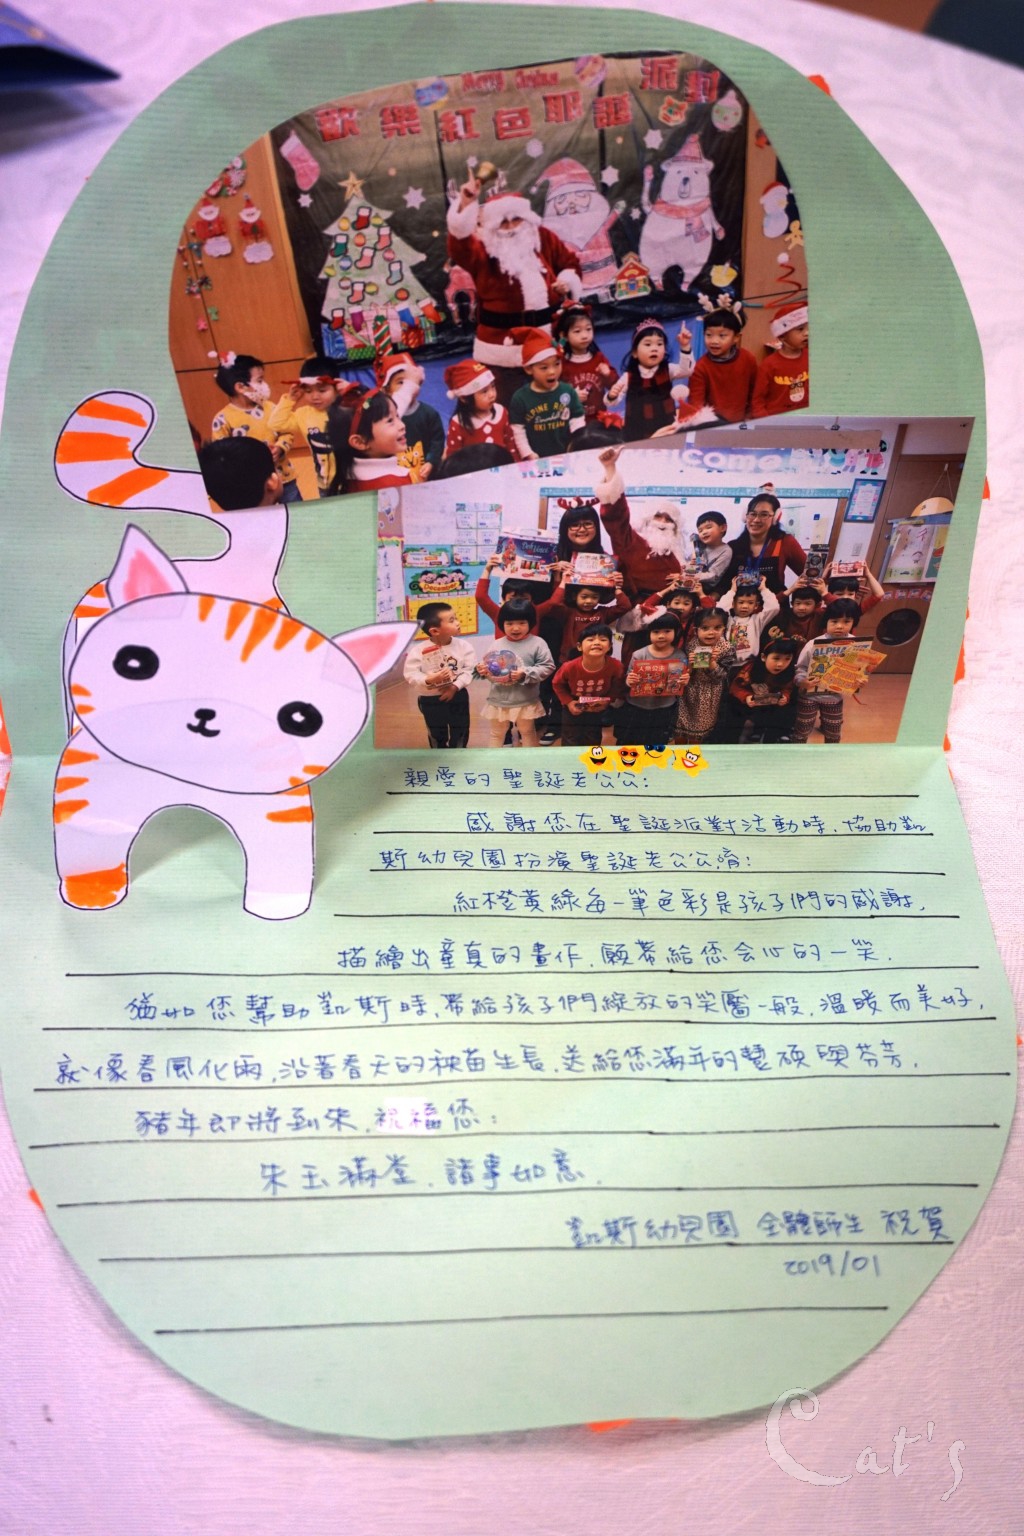 Merry Christmas
歡樂紅色耶誕派對
ALPINE
SKI TEAM
Welcome
ALPHA
親愛的聖誕老公公:
感謝您在聖誕派對活動時,協助凱
斯幼兒園扮演聖誕老公公唷!
紅橙黃綠每一筆色彩是孩子們的感謝,
描繪出童真的畫作,願帶給您会心的一笑,
猶如您幫助凱斯時,帶給孩子們綻放的笑靨一般,溫暖而美好,
就像春風化雨,沿著春天的秧苗生長,送給您滿年的豐碩與芬芳,
豬年即將到來,祝福您:
朱玉滿堂,諸事如意,
凱斯幼兒園 全體師生 祝賀
2019/01
Cat's